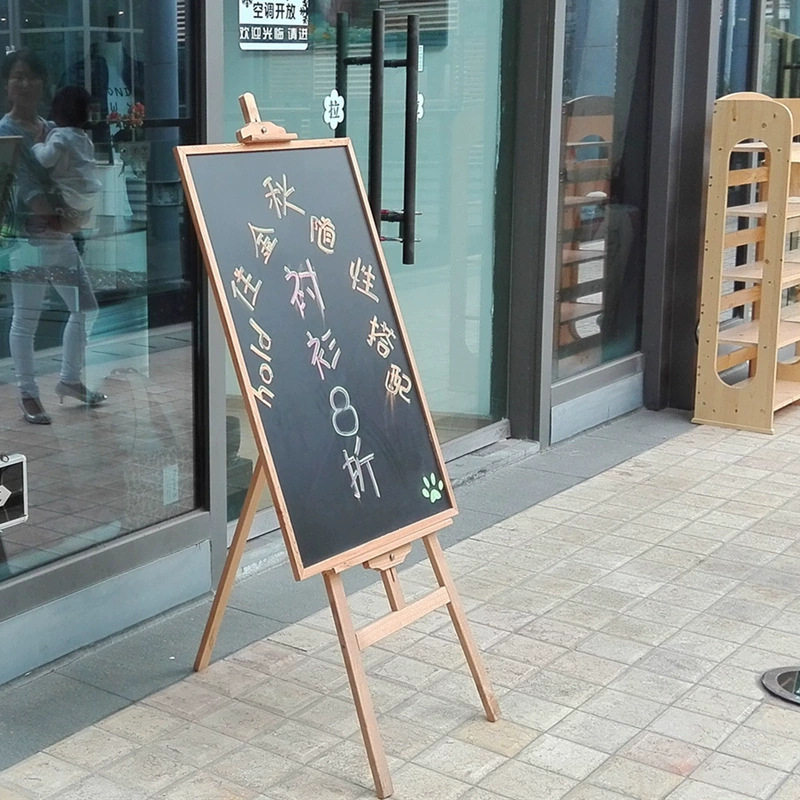 空调开放
欢迎光临 请进
拉
hold住金秋
随性搭配
衬衫8折